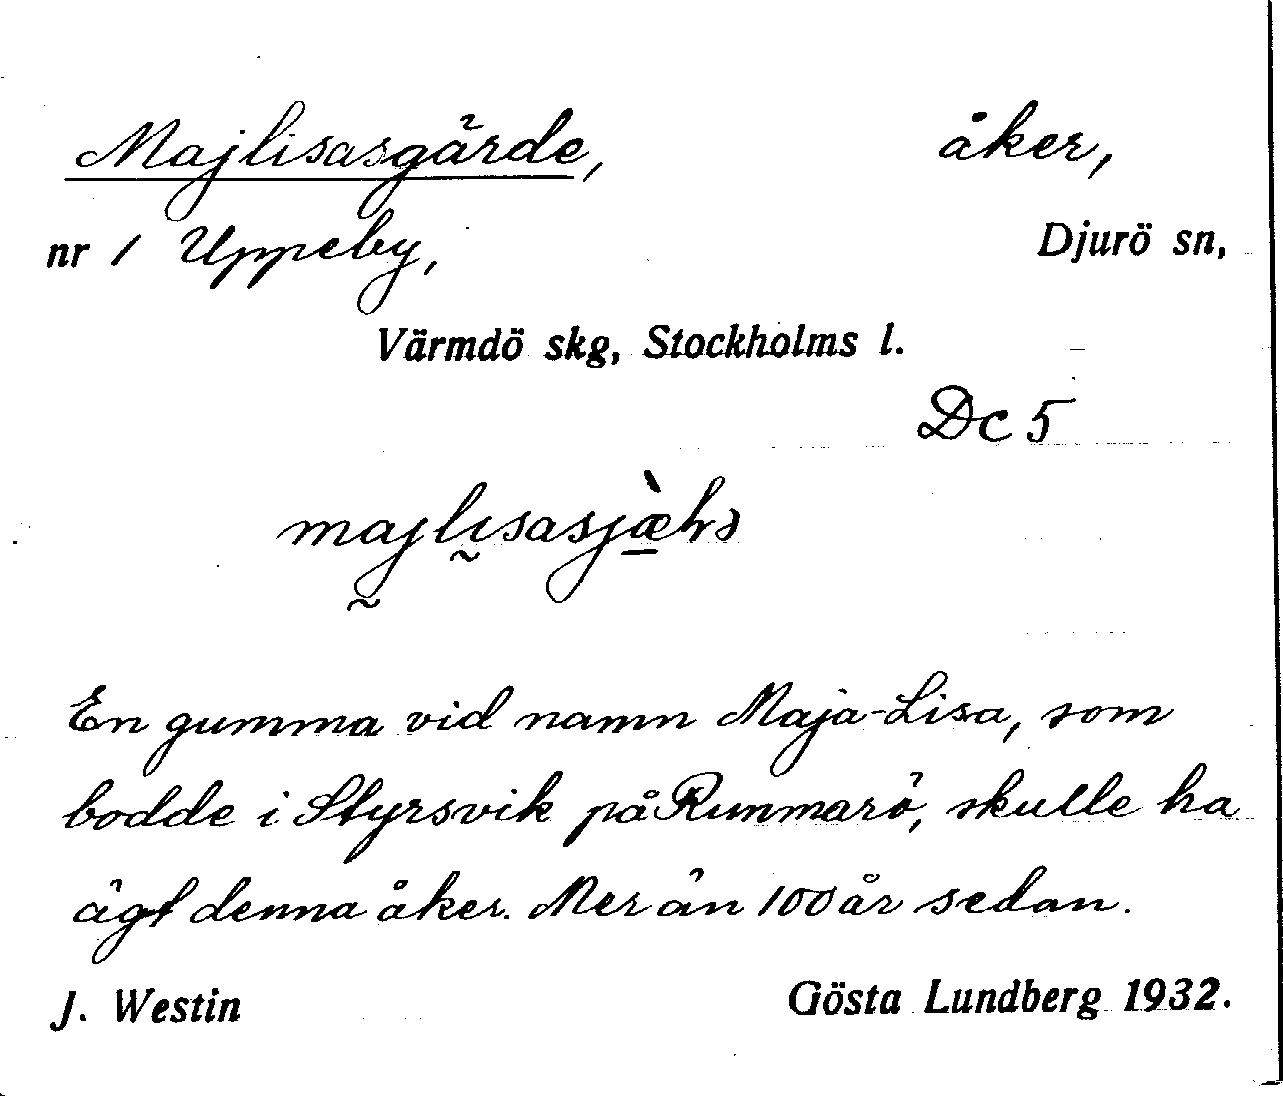 Majlisasgärde, åker,
nr 1 Uppeby, Djurö sn,
Värmdö skg, Stockholms l.
Dc 5
En gumma vid namn Maja-Lisa, som
bodde i Styrsvik på Runmarö, skulle ha
ägt denna åker. Mer än 100 år sedan.
J. Westin Gösta Lundberg 1932.